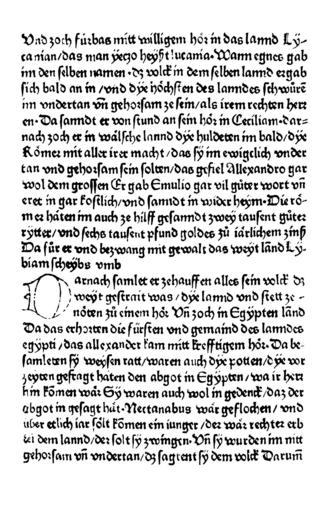 Vnd zoch fürbas mitt willigem hör in das lannd Ly-
canian/das man yeczo heyſſt lucania· Wann egnes gab
im den ſelben namen· dz volck in dem ſelben lannd ergab
ſich bald an in/vnd dye höchſten des lanndes ſchwůrē
im vndertan vn̄ gehorſam ze ſein/als irem rechten herr
en· Da ſanndt er von ſtund an ſein hör in Ceciliam· dar-
nach zoch er in wälſche lannd dye huldeten im bald/dye
Römer mit aller irer macht/das ſy im ewigclich vnder
tan vnd gehorſam ſein ſolten/das gefiel Allexandro gar
wol dem groſſen Er gab Emulio gar vil gůter wort vn̄
eret in gar koſtlich/vnd ſanndt in wider heym· Die rö-
mer häten im auch ze hilff geſanndt zwey tauſent gůter
rytter/vnd ſechs tauſent pfund goldes zů iärlichem zinß
Da fůr er vnd bezwang mit gewalt das weyt länd Ly-
biam ſcheybs vmb
Darnach ſamlet er zehauffen alles ſein volck dz
weyt geſtrait was/dye lannd vnd ſtett ze-
nöten zů einem hör Vn̄ zoch in Egÿpten länd
Da das erhorten die fürſten vnd gemaind des lanndes
egÿpti/das allexander kam mitt krefftigem hör· Da be-
ſamleten ſy weyſen ratt/waren auch dye potten/dye vor
zeyten gefragt haten den abgot in Egÿpten/wa ir herr
hin kōmen wär Sy waren auch wol in gedenck/daz der
abgot in geſagt hät· Nectanabus wär geflochen/vnd
über etlich iar ſölt kōmen ein iunger/der wär rechter erb
bei dem lannd/der ſolt ſy zwingen· Vn̄ ſy wurden im mit
gehorſam vn̄ vndertan/dz ſagtent ſy dem volck Darum̄